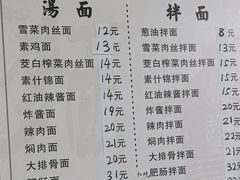 湯面
雪菜肉丝面 12元
素鸡面 13元
茭白榨菜肉丝面 14元
素什锦面 14元
红油辣酱面 14元
炸酱面 19元
辣肉面 20元
焖肉面 21元
大排骨面 20元
肥肠面 31元
拌面
葱油拌面 8元
雪菜肉丝拌面
茭白榨菜肉丝拌面
素什锦拌面
红油辣酱拌面 15
炸酱拌面
辣肉拌面
焖肉拌面
大排骨拌面
肥肠拌面 32